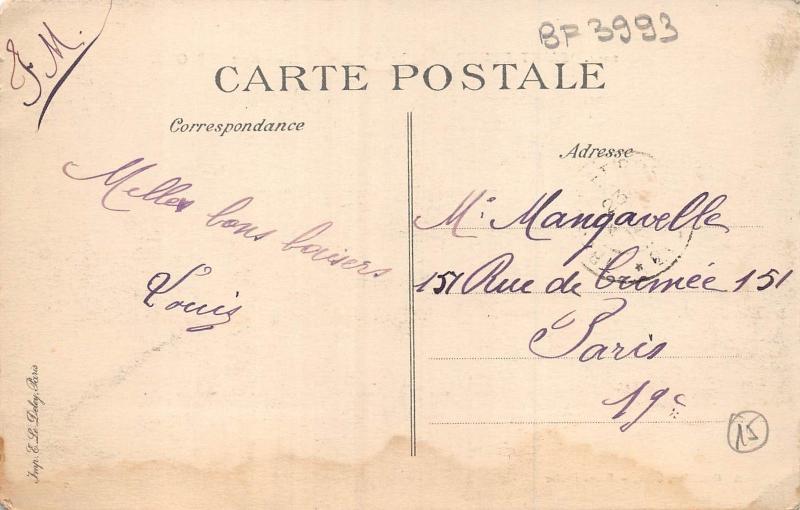 F.M.
BF 3993
CARTE POSTALE
Correspondance
Melles bons baisers
Louis
Adresse
Mr Mangavelle
151 Rue de Crimée 151
Paris
19e
15
Imp. E. Le Deley, Paris